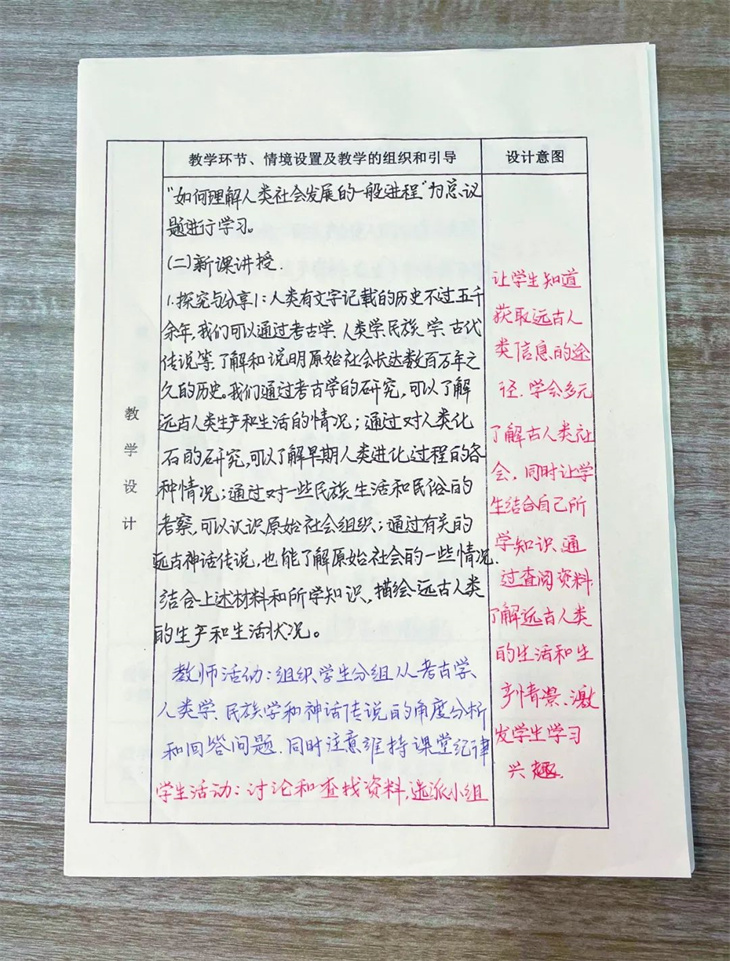 教学环节、情境设置及教学的组织和引导
设计意图
教学设计
“如何理解人类社会发展的一般进程”为总议
题进行学习。
(二)新课讲授.
1.探究与分享1:人类有文字记载的历史不过五千
余年,我们可以通过考古学、人类学、民族学、古代
传说等,了解和说明原始社会长达数百万年之
久的历史。我们通过考古学的研究,可以了解
远古人类生产和生活的情况;通过对人类化
石的研究,可以了解早期人类进化过程的各
种情况;通过对一些民族生活和民俗的
考察,可以认识原始社会组织;通过有关的
远古神话传说,也能了解原始社会的一些情况.
结合上述材料和所学知识,描绘远古人类
的生产和生活状况。
教师活动:组织学生分组从考古学、
人类学、民族学和神话传说的角度分析
和回答问题.同时注意维持课堂纪律
学生活动:讨论和查找资料,选派小组
让学生知道
获取远古人
类信息的途
径.学会多元
了解古人类社
会,同时让学
生结合自己所
学知识,通
过查阅资料
了解远古人类
的生活和生
产情景、激
发学生学习
兴趣.